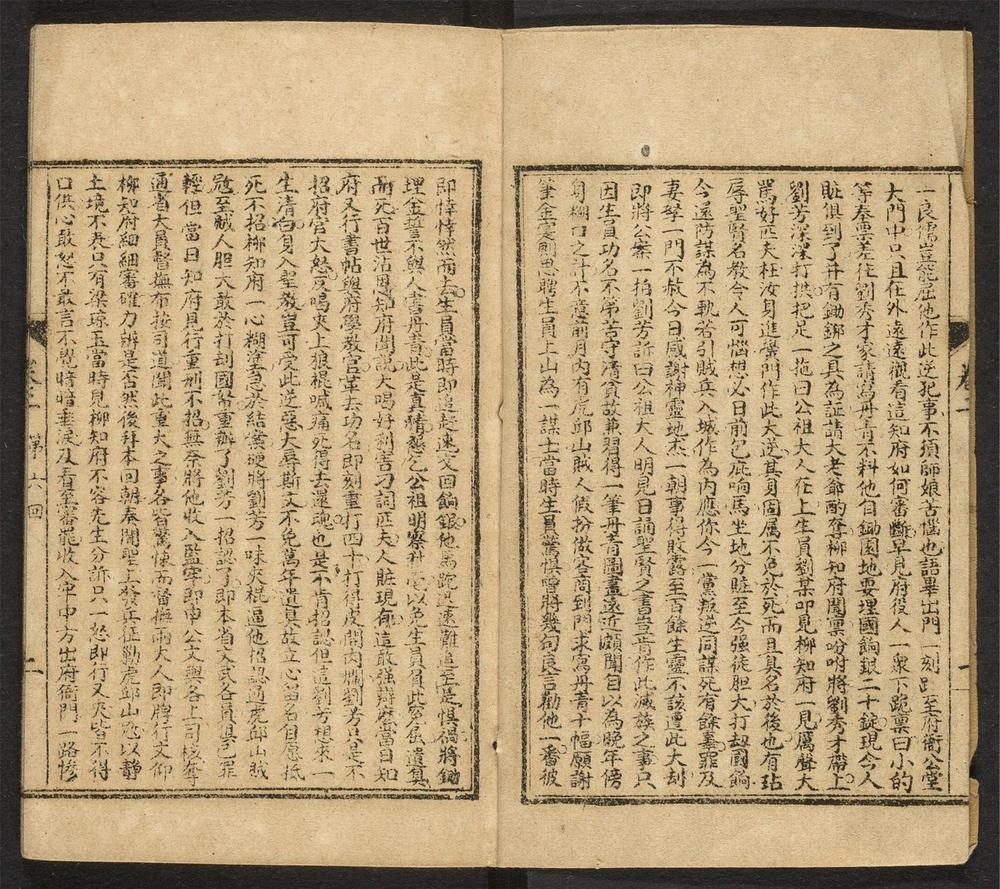 一良儒豈能屈他作此逆犯事不須師娘苦惱也語畢出門一刻跑至府衙公堂
大門中只且在外遠遠觀看這知府如何審斷早見府役人一衆下跪稟曰小的
等奉票差往劉秀才家請寫丹青不料他自鋤園地要埋國餉銀二十錠現今人
賍俱到了并有鋤鋤之具為証請大老爺酌奪柳知府聞稟吩咐將劉秀才帶上
劉芳深深打拱把足一拖曰公祖大人在上生員劉某叩見柳知府一見厲聲大
罵好匹夫枉汝身進黌門作此大逆其身固属不免於死而且臭名於後也有玷
辱聖賢名教令人可惱想必日前包庇响馬坐地分賍至今強徒胆大打刼國餉
今還防謀為不軌若引賊兵入城作為内應你今一黨叛逆同謀死有餘辜罪及
妻孥一門不赦今日感謝神靈地杰一朝事得敗露至百餘生靈不該遭此大刼
即將公案一拍劉芳訴曰公祖大人明見日誦聖賢之書豈肯作此滅族之事只
因生員功名不第苦守清貧故兼習得一筆丹青圖畫遠近頗聞自以為晚年傍
身糊口之計不意前月内有虎邱山賊人假扮做客商到門求寫丹青十幅願謝
筆金寔則思聘生員上山為一謀士當時生員驚惧曾將幾句良言勸他一番彼
即悻悻然而去生員當時即追趕速交回餉銀他馬跑迅速難追至是惧禍將鋤
埋金誓不與人書丹青此是真情懇乞公祖明察秋毫以免生員負此寃屈遺臭
而死百世沾恩知府聞說大喝好利害刁詞匹夫人賍現有這敢強辯麽當日知
府又行書帖與府學教官革去功名即刻重打四十打得皮開肉爛劉芳只是不
招府官大怒反喝夾上狼棍喊痛死得去還魂也是不肯招認但這劉芳想來一
生清白身入聖教豈可受此逆惡大辱斯文不免萬年遺臭故立心留名自愿抵
死不招柳知府一心糊塗急於結黨硬將劉芳一味夾棍逼他招認通虎邱山賊
寇至賊人胆大敢於打刼國帑重辦了劉芳一招認了即本省文武各員俱已罪
輕但當日知府見行重刑不招無奈將他收入監牢即申公文與各上司核奪
通省大員督撫布按司道聞此重大之事各皆驚懷而督撫兩大人即牌行文仰
柳知府細細審確力辨是否然後拜本回朝奏聞聖上發兵征勦虎邱山寇以静
土境不表只有梁琼玉當時見柳知府不容先生分訴只一怒即行又夾皆不得
口供心敢怒不敢言不覺暗暗垂淚及看至審罷收入牢中方出府衙門一路慘
卷二
第六回
二
卷二
一